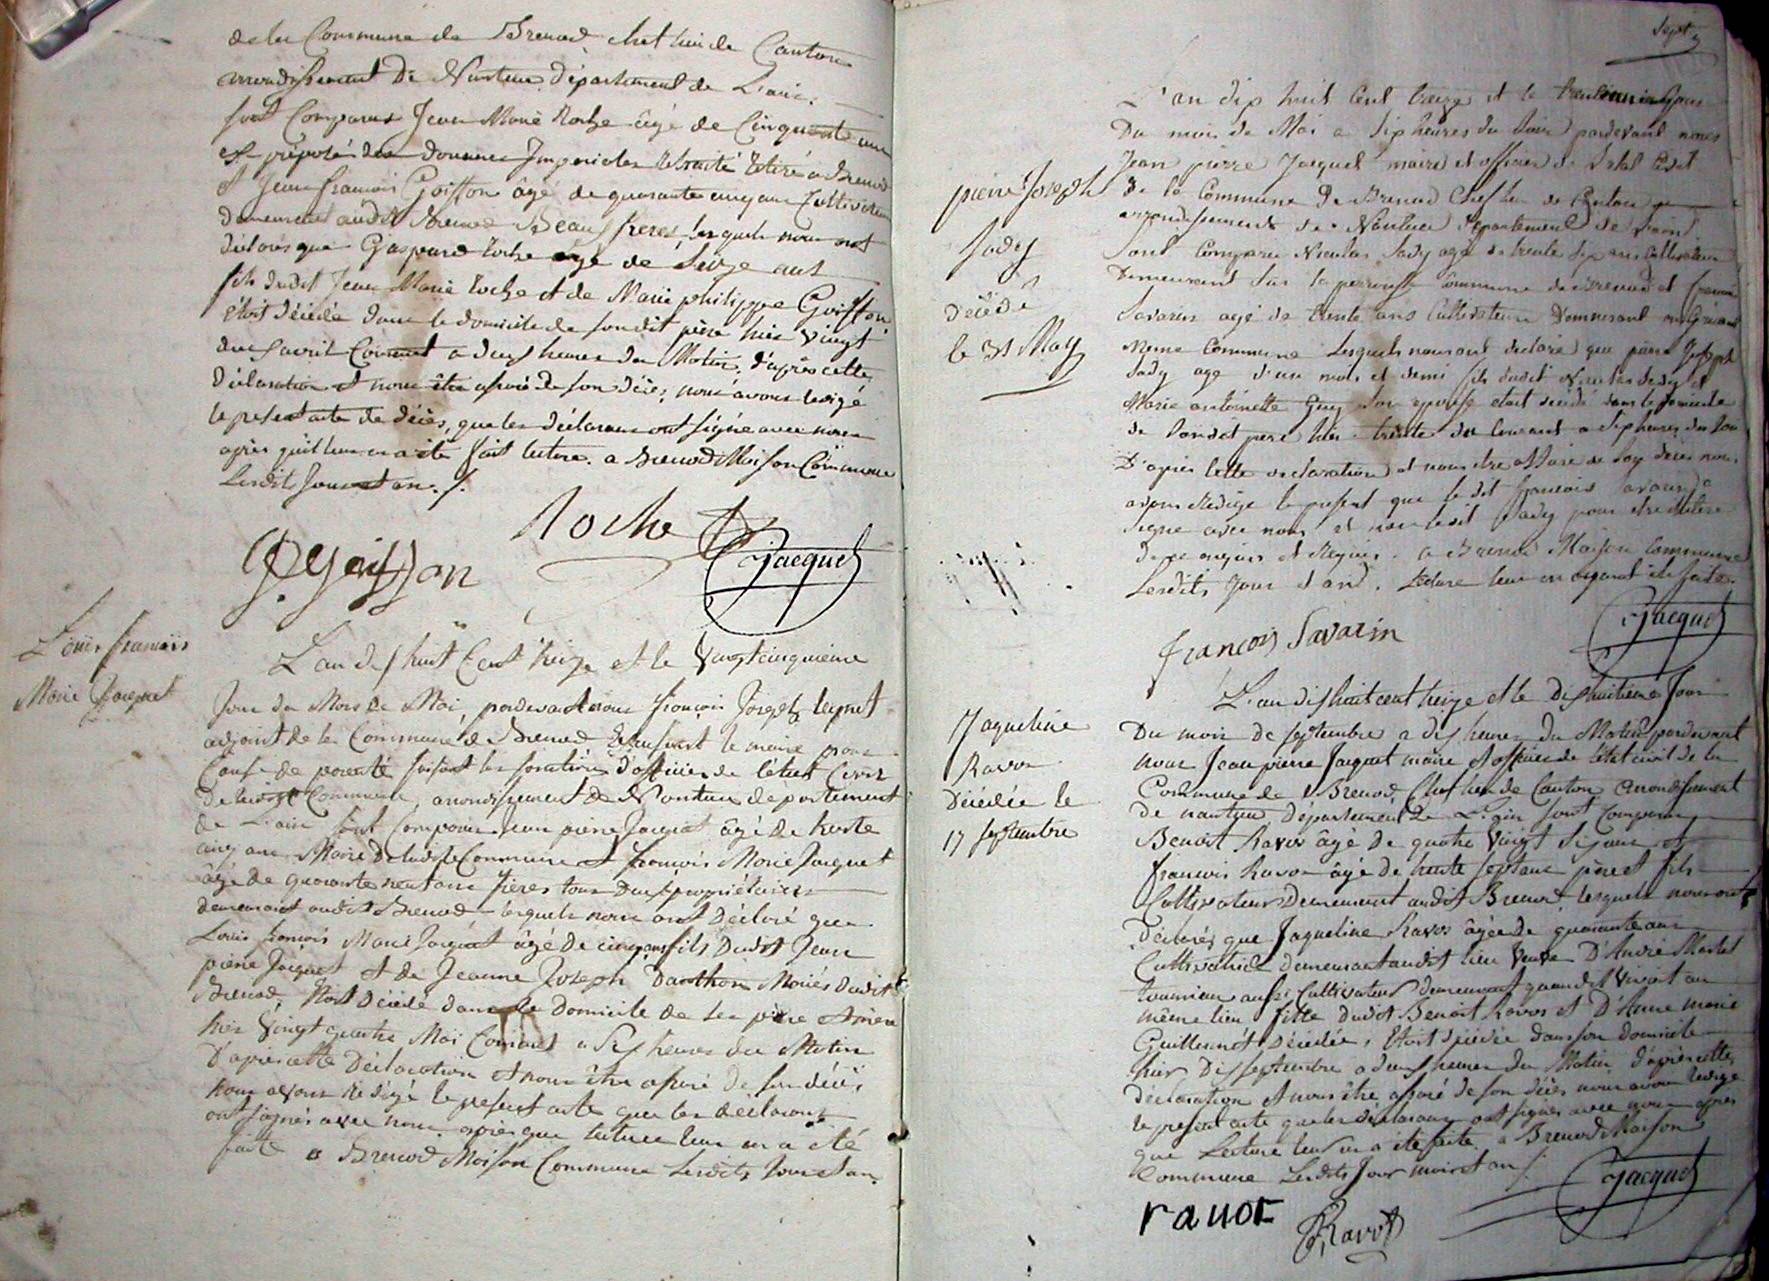 de la Commune de Brenod chef lieu de Canton
arrondissement De Nantua Département de L'ain.
sont Comparus Jean Marie Roche âgé de Cinquante un
ex préposé des Douanes Imperiales Retraité Retiré a Brenod
et Jean francois Goiffon âgé de quarante cinq ans Cultivateur
demeurant audit Brenod Beaux freres, lesquels nous ont
déclaré que Gaspard Roche âgé de Seize ans
fils dudit Jean Marie Roche et de Marie philippe Goiffon
étoit décédé dans le domicile de sondit père hier vingt
deux avril Courant a deux heures du Matin, d'après cette
Déclaration et nous être assuré de son décès, nous avons redigé
le present acte de décès, que les déclarans ont signé avec nous
après qu'il leur en a été fait lecture. a Brenod Maison Commune
Lesdits Jour et an ./.
Roche
Goiffon
Jacquet
Louis francois
Marie Jacquet
L'an dix huit Cent treize et le Vingt cinquieme
Jour du Mois de Mai, pardevant nous françois Joseph
adjoint de la Commune de Brenod le maire pour
Cause de parenté faisant les fonctions d'officier de l'état Civil
De ladite Commune, arrondissement de Nantua département
de L'ain sont Comparus Jean pierre Jacquet âgé de trente
cinq ans Maire De ladite Commune et francois Marie Jacquet
âgé de quarante neuf ans frères tous Deux propriétaires
demeurant audit Brenod lesquels nous ont Déclaré que
Louis francois Marie Jacquet âgé De cinq ans fils Dudit Jean
pierre Jacquet et de Jeanne Joseph Danthon Mariés dudit
Brenod, étoit Décédé dans le Domicile de ses père et mère
hier Vingt quatre Mai Courant a Six heures du Matin
D'après cette Déclaration et nous être assuré De son décès
Nous avons Rédigé le present acte que les déclarans
ont signés avec nous après que lecture leur en a été
faite a Brenod Maison Commune Lesdits Jour et an.
Sept
L'an dix huit Cent treize et le trente unieme Jour
Du mois de Mai a six heures du soir pardevant nous
Jean pierre Jacquet maire et officier de l'etat Civil
de la Commune De Brenod Chef lieu de Canton
arrondissement de Nantua Departement de l'ain.
sont Comparu Nicolas Sady agé de trente six ans Cultivateur
Demeurant sur la Commune de Brenod et francois
Savarin agé de trente ans Cultivateur Demeurant
Meme Commune Lesquels nous ont declaré que pierre Joseph
Sady agé d'un mois et demi fils dudit Nicolas Sady et
Marie antoinette Guy son epouse etait decedé dans le domicile
de sondit pere hier trente du Courant a six heures du soir
D'après cette declaration et nous etre assuré de son deces nous
avons Redigé le present que le dit francois Savarin a
signé avec nous et non ledit Sady pour etre illitere
de ce enquis et Requis. a Brenod Maison Commune
Lesdits Jour et an. Lecture leur en ayant été faite.
pierre Joseph
Sady
Décédé
le 31 May
francois Savarin
Jacquet
Jaqueline
Ravos
Décédée le
17 septembre
L'an dix huit cent treize et le Dix huitieme Jour
Du mois De septembre a dix heures Du Matin pardevant
nous Jean pierre Jacquet maire et officier de l'état civil de la
Commune de Brenod Chef lieu de Canton arrondissement
De nantua Département De L'ain sont Comparu
Benoit Ravos âgé De quatre Vingt Six ans et
francois Ravos âgé de trente Sept ans père et fils
Cultivateurs Demeurant audit Brenod, lesquels nous ont
Déclarés que Jaqueline Ravos âgée de quarante ans
Cultivatrice Demeurant audit lieu Veuve D'André Martel
aussi Cultivateur demeurant quand il Vivoit au
même lieu fille Dudit Benoit Ravos et D'Anne marie
Guillermet Décédée, étoit décédée dans son domicile
hier Dix septembre a deux heures du Matin, d'après cette
déclaration et nous être assuré de son décès nous avons redigé
le present acte que les déclarans ont signés avec nous après
que Lecture leur en a été faite a Brenod Maison
Commune Lesdits Jour mois et an ./.
Jacquet
ravot
Ravot